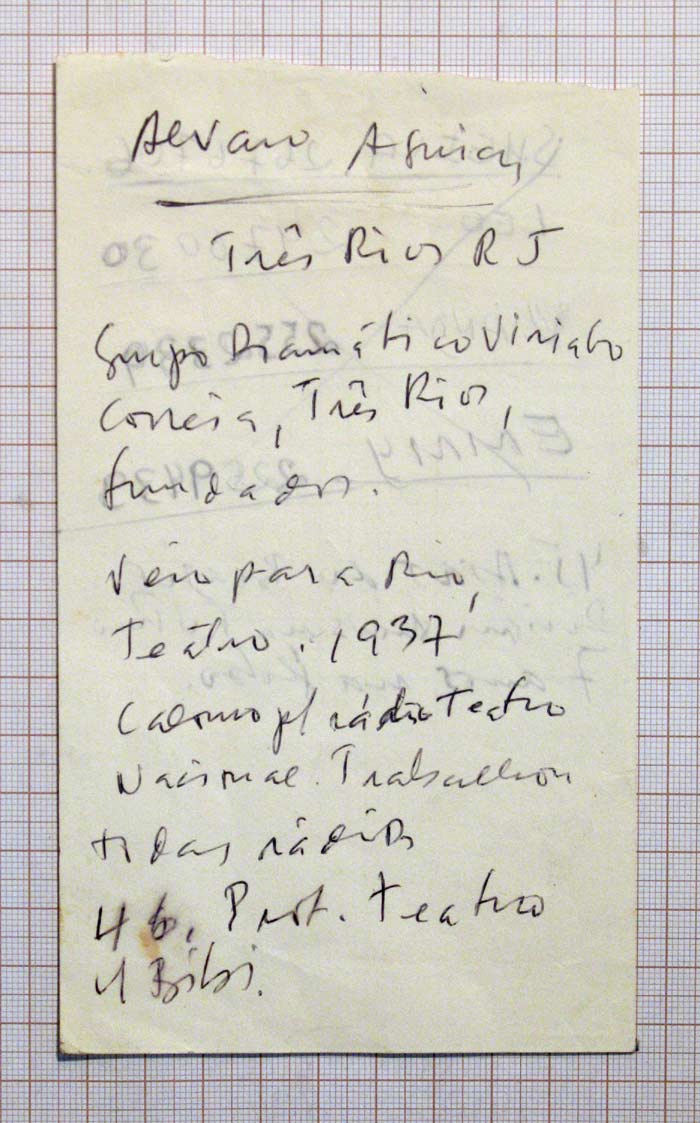 Alvaro Aguiar,
Três Rios RJ
Grupo Dramático Viriato
Corrêa, Três Rios,
fundador.
Veio para Rio,
Teatro. 1937
Calouro p/ rádio Teatro
Nacional. Trabalhou
todas rádios
46. Prof. Teatro
c/ Bibi.